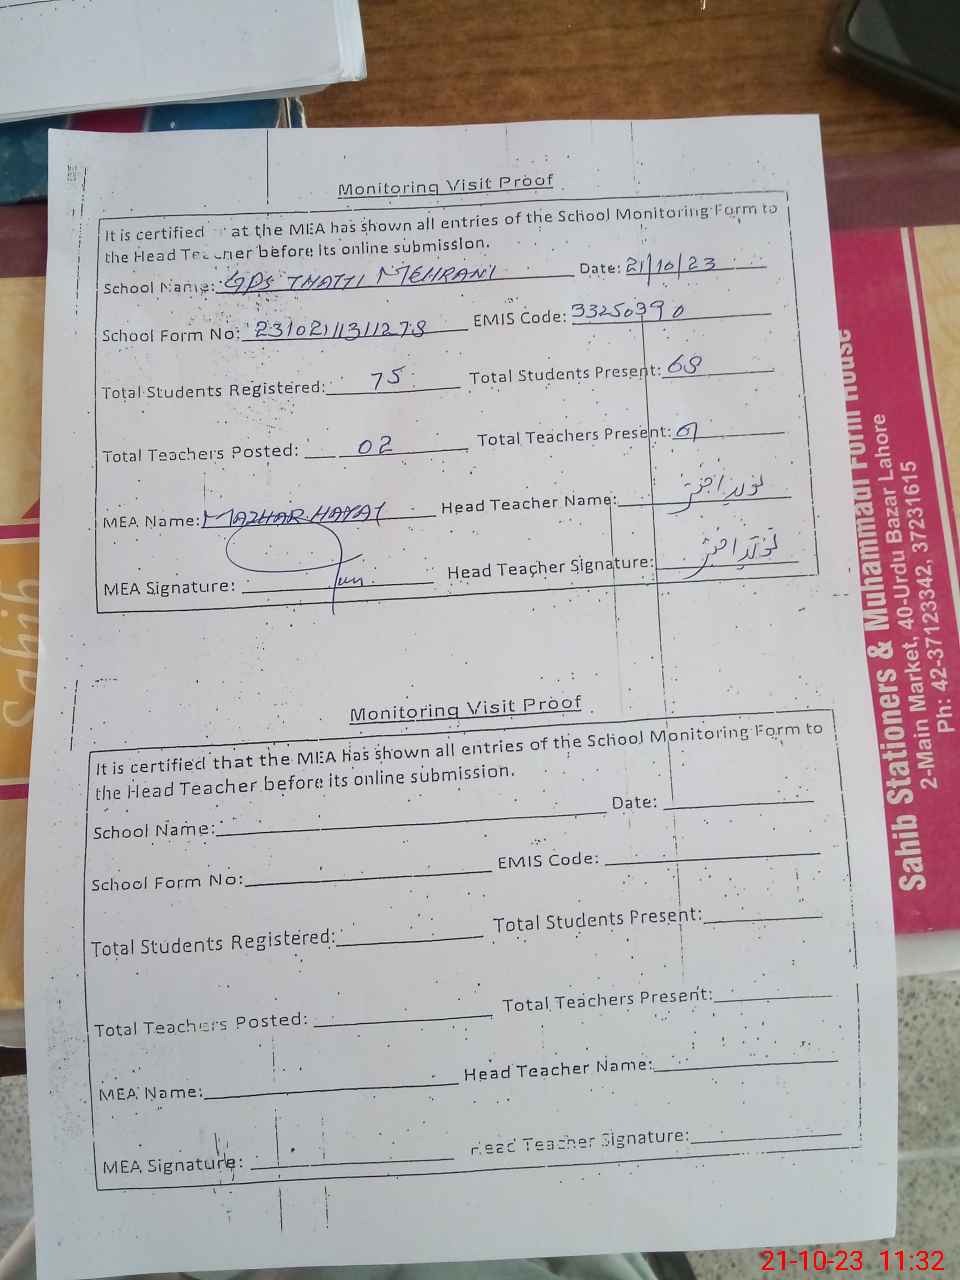 Monitoring Visit Proof
It is certified at the MEA has shown all entries of the School Monitoring Form to
the Head Teacher before its online submission.
School Name: GPS THATTI MEHRANI Date: 21/10/23
School Form No: 231021131127S EMIS Code: 33250390
Total Students Registered: 75 Total Students Present: 68
Total Teachers Posted: 02 Total Teachers Present: 01
MEA Name: MAZHAR HAYAT Head Teacher Name:
MEA Signature: Head Teacher Signature:
Monitoring Visit Proof
It is certified that the MEA has shown all entries of the School Monitoring Form to
the Head Teacher before its online submission.
School Name: Date:
School Form No: EMIS Code:
Total Students Registered: Total Students Present:
Total Teachers Posted: Total Teachers Present:
MEA Name: Head Teacher Name:
MEA Signature: Head Teacher Signature:
Sahib Stationers & Muhammadi Form House
2-Main Market, 40-Urdu Bazar Lahore
Ph: 42-37123342, 37231615
Sahib
21-10-23 11:32